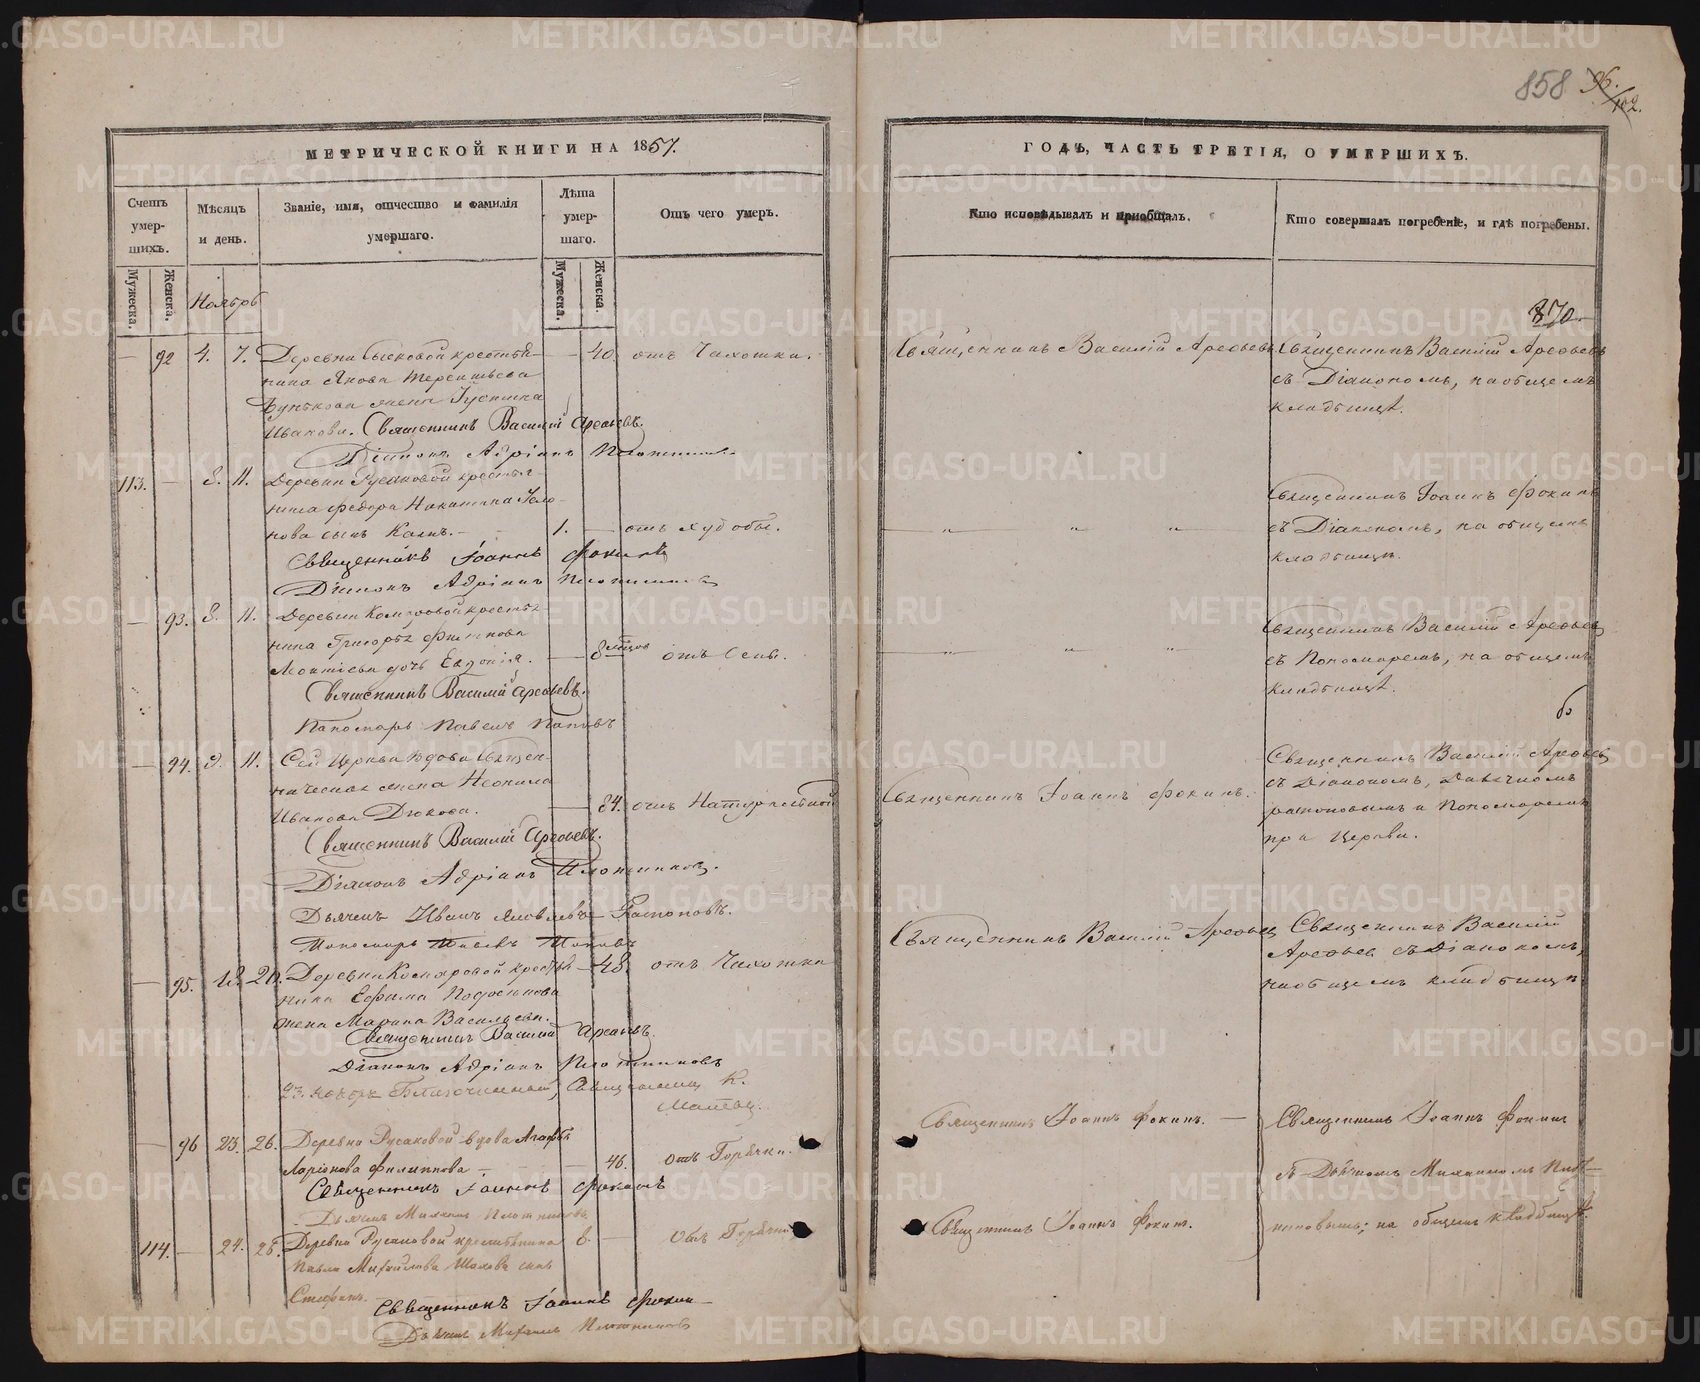 858 96.
102.
МЕТРИЧЕСКОЙ КНИГИ НА 1857.
Счетъ умер-шихъ.
Мужеска.
Женска.
Мѣсяцъ и день.
Званіе, имя, отчество и фамилія умершаго.
Лѣта умер-шаго.
Мужеска.
Женска.
Отъ чего умеръ.
Ноябрь
— 92 4. 7. Деревни Сысковой крестья-
нина Якова Терентьева
жена Іустина
Иванова. Священникъ Василій Арефьевъ.
— 40. отъ Чахотки.
Діаконъ Адріанъ Плотниковъ
113. — 8. 11. Деревни Русаковой крестья-
нина Федора Никитина
сынъ 1. — отъ худобы.
Священникъ Іоаннъ Фокинъ
Діаконъ Адріанъ Плотниковъ
— 93. 8. 11. Деревни Комаровой крестья-
нина Григорья Филипова
Леонтіева дочь Евдокія. — 8 мѣсцов отъ Оспы.
Священникъ Василій Арефьевъ.
Пономарь Павелъ Поповъ
— 94. 9. 11. Сей Церкви вдова Священ-
ническая жена Неонила
Иванова Дюкова. — 84. отъ Натуральной
Священникъ Василій Арефьевъ.
Діаконъ Адріанъ Плотниковъ.
Дьячекъ Иванъ Яковлевъ Ратоновъ.
Пономарь Павелъ Поповъ
— 95. 18. 20. Деревни Комаровой крестья-
— 48. отъ Чахотки
нина Ефима
жена Марина Васильева.
Священникъ Василій Арефьевъ.
Діаконъ Адріанъ Плотниковъ
23. Ноября Благочинный, Священникъ К.
— 96 23. 26. Деревни Русаковой вдова Агафья
Ларіонова Филиппова — 46. отъ Горячки.
Священникъ Іоаннъ Фокинъ
Дьячекъ Михаилъ Плотниковъ
114. — 24. 28. Деревни Русаковой крестьянина 6. — Отъ Горячки
Павла Михайлова сынъ
Стефанъ.
Священникъ Іоаннъ Фокинъ
Дьячекъ Михаилъ Плотниковъ
ГОДЪ, ЧАСТЬ ТРЕТІЯ, О УМЕРШИХЪ.
Кто исповѣдывалъ и пріобщалъ.
Кто совершалъ погребеніе, и гдѣ погребены.
870.
Священникъ Василій Арефьевъ
Священникъ Василій Арефьевъ
съ Діакономъ, на общемъ
кладбищѣ.
Священникъ Іоаннъ Фокинъ
— „ — „ — „
съ Діакономъ, на общемъ
кладбищѣ.
Священникъ Василій Арефьевъ
— „ — „ — „
съ Пономаремъ, на общемъ
кладбищѣ.
Священникъ Іоаннъ Фокинъ.
Священникъ Василій Арефьевъ
съ Діакономъ, Дьячкомъ
Ратоновымъ и Пономаремъ
при Церкви.
Священникъ Василій Арефьевъ
Священникъ Василій
Арефьевъ съ Діакономъ,
на общемъ кладбищѣ
Священникъ Іоаннъ Фокинъ. —
Священникъ Іоаннъ Фокинъ
съ Дьячкомъ Михаиломъ Плот-
Священникъ Іоаннъ Фокинъ.
никовымъ; на общемъ кладбищѣ.
METRIKI.GASO-URAL.RU